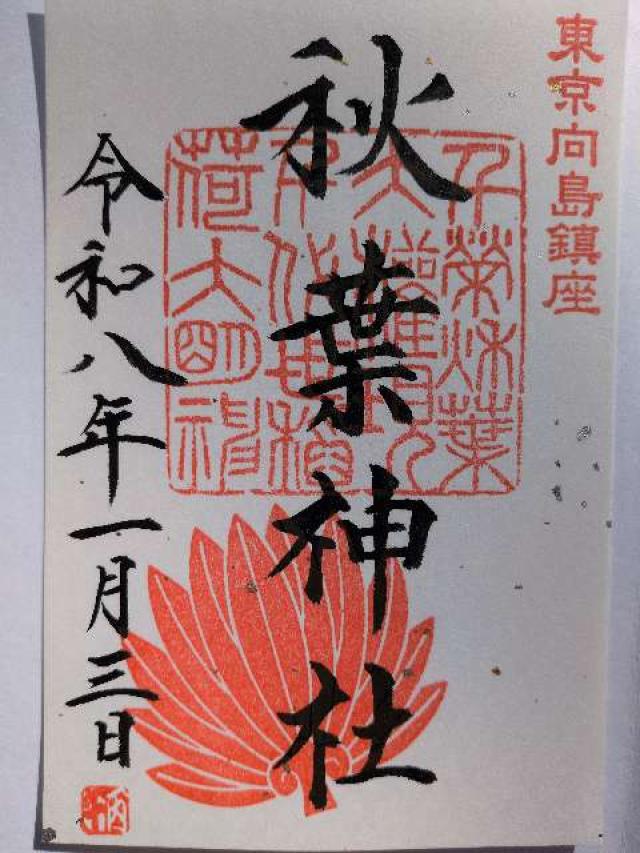 東京向島鎮座
秋葉神社
令和八年一月三日